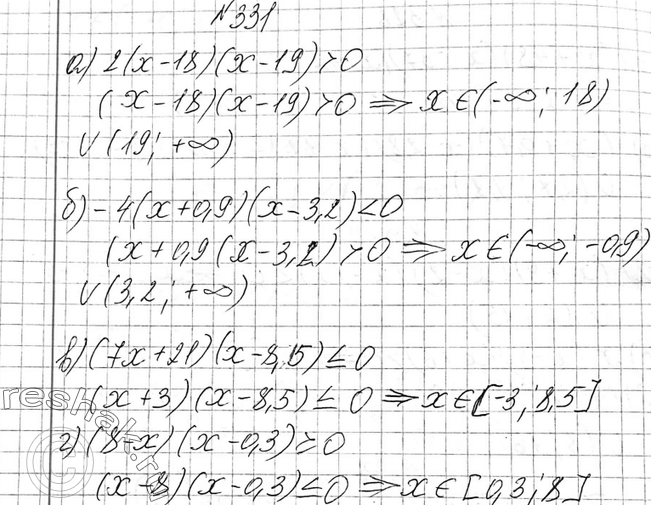 №331
а) 2(x-18)(x-19)>0
(x-18)(x-19)>0 ⇒ x∈(-∞; 18)
∪(19; +∞)
б) -4(x+0,9)(x-3,2)<0
(x+0,9(x-3,2)>0 ⇒ x∈(-∞; -0,9)
∪(3,2; +∞)
в) (7x+21)(x-8,5)≤0
(x+3)(x-8,5)≤0 ⇒ x∈[-3; 8,5]
г) (8-x)(x-0,3)≥0
(x-8)(x-0,3)≤0 ⇒ x∈[0,3; 8]
reshak.ru